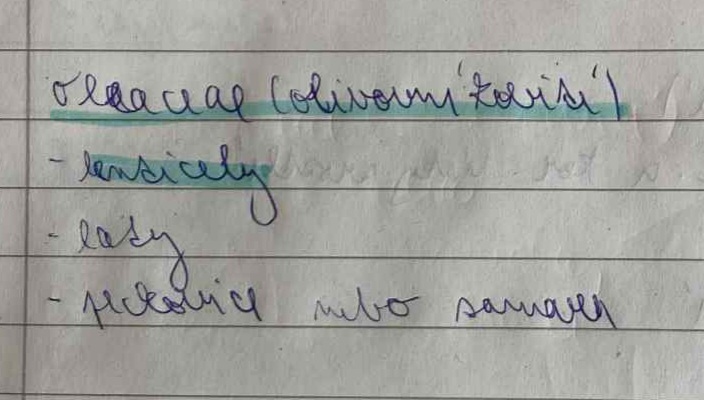 Oleaceae (olivovníkovité)
- lenticely
- laty
- peckovice nebo samara